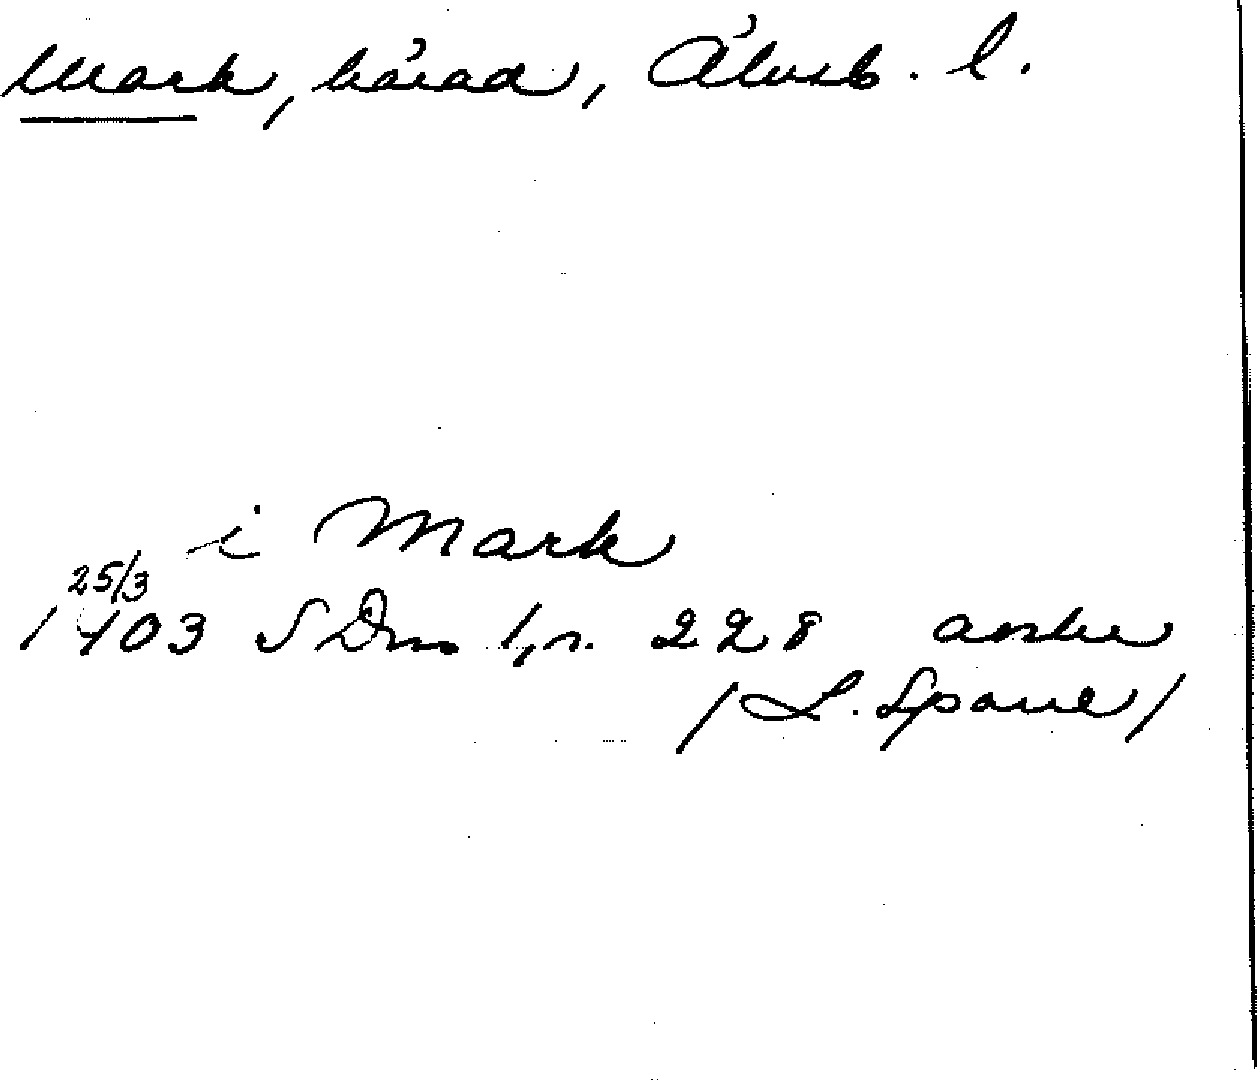 Mark, härad, Älvsb. l.
i Mark
25/3
1403 SDns 1, s. 228 avskr
/L. Sparre/